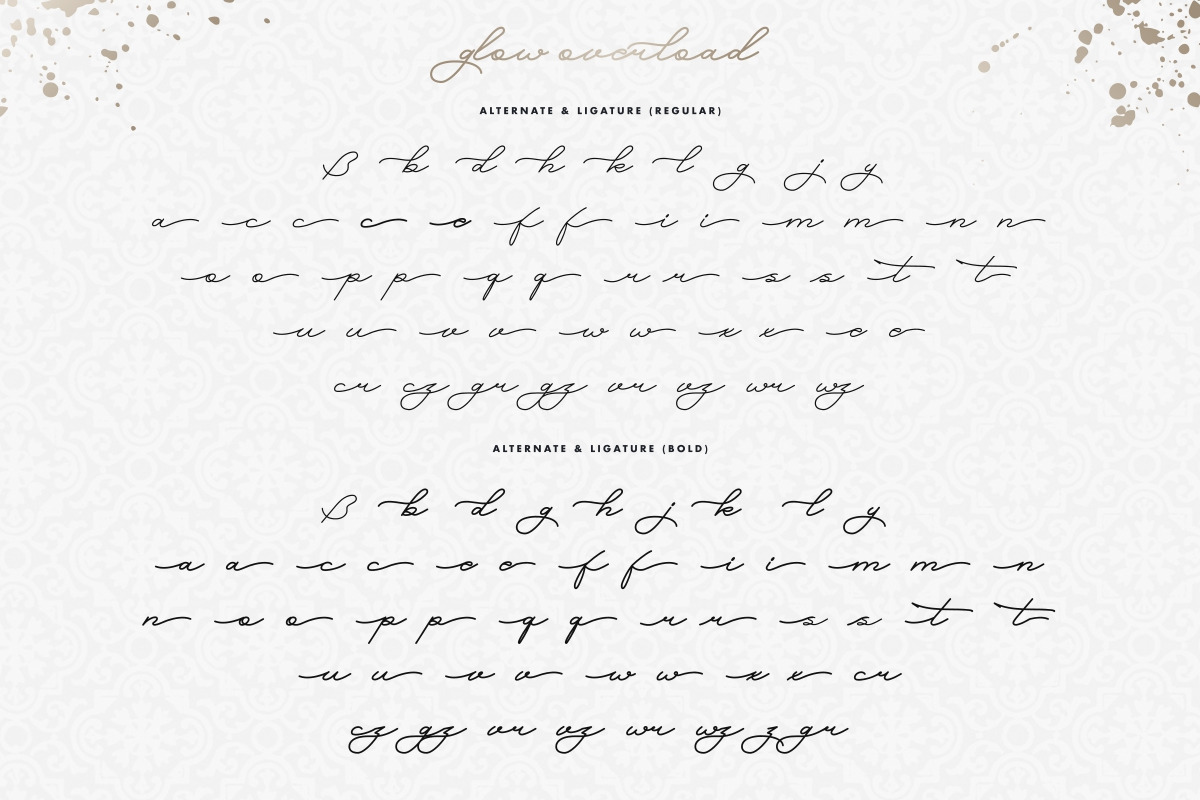 glow overload
ALTERNATE & LIGATURE (REGULAR)
ß b d h k l g j y
a c c c e f f i i m m n n
o o p p q q r r s s t t
u u v v w w x x e e
cr cz gr gz vr vz wr wz
ALTERNATE & LIGATURE (BOLD)
ß b d g h j k l y
a a c c e e f f i i m m n
n o o p p q q r r s s t t
u u v v w w x x cr
cz gz vr vz wr wz z gr